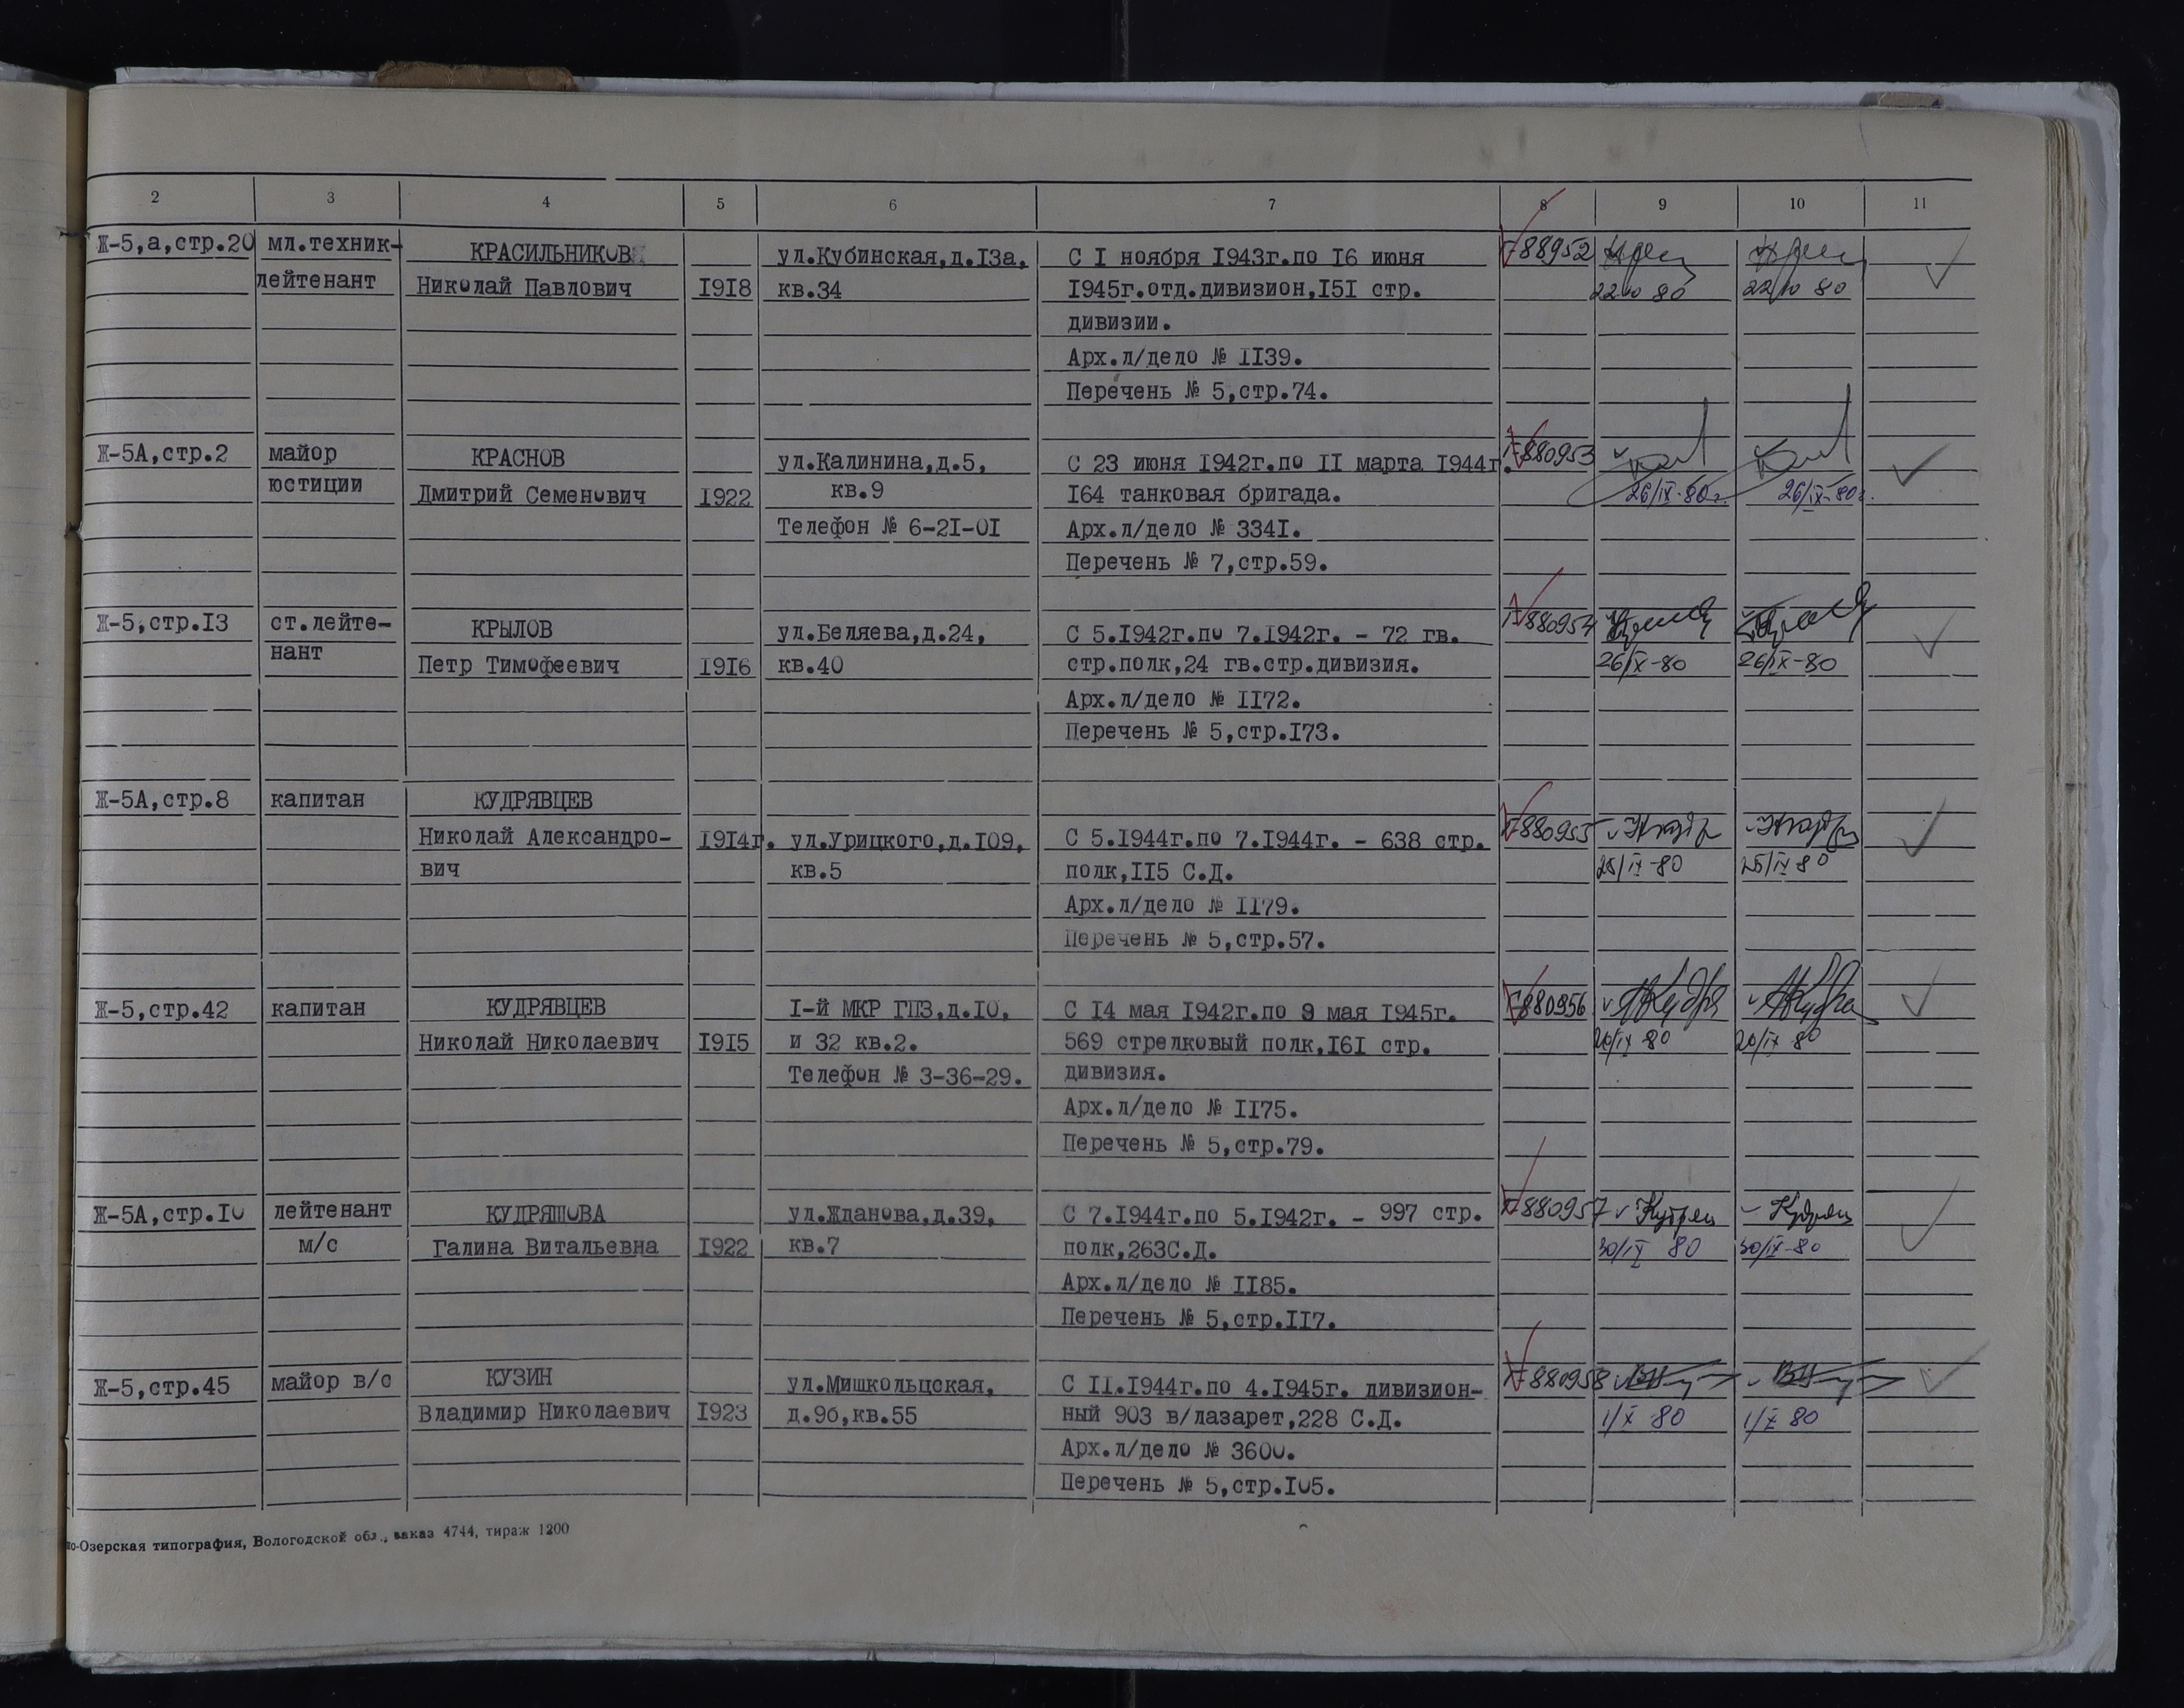 2 3 4 5 6 7 8 9 10 11
Ж-5,а,стр.20 мл.техник- КРАСИЛЬНИКОВ ул.Кубинская,д.13а, С 1 ноября 1943г.по 16 июня 788952
лейтенант Николай Павлович 1918 кв.34 1945г.отд.дивизион,151 стр. 22/10 80 22/10 80
дивизии.
Арх.л/дело № 1139.
Перечень № 5,стр.74.
Ж-5А,стр.2 майор КРАСНОВ ул.Калинина,д.5, С 23 июня 1942г.по 11 марта 1944г. 880953
юстиции Дмитрий Семенович 1922 кв.9 164 танковая бригада. 26/IX-80г. 26/IX-80г.
Телефон № 6-21-01 Арх.л/дело № 3341.
Перечень № 7,стр.59.
Ж-5,стр.13 ст.лейте- КРЫЛОВ ул.Беляева,д.24, С 5.1942г.по 7.1942г. - 72 гв. 880954
нант Петр Тимофеевич 1916 кв.40 стр.полк,24 гв.стр.дивизия. 26/IX-80 26/IX-80
Арх.л/дело № 1172.
Перечень № 5,стр.173.
Ж-5А,стр.8 капитан КУДРЯВЦЕВ
Николай Александро- 1914г. ул.Урицкого,д.109, С 5.1944г.по 7.1944г. - 638 стр. 880955
вич кв.5 полк,115 С.Д. 25/IX-80 25/IX 80
Арх.л/дело № 1179.
Перечень № 5,стр.57.
Ж-5,стр.42 капитан КУДРЯВЦЕВ 1-й МКР ГПЗ,д.10, С 14 мая 1942г.по 9 мая 1945г. 880956
Николай Николаевич 1915 и 32 кв.2. 569 стрелковый полк,161 стр. 20/IX 80 20/IX 80
Телефон № 3-36-29. дивизия.
Арх.л/дело № 1175.
Перечень № 5,стр.79.
Ж-5А,стр.10 лейтенант КУДРЯШОВА ул.Жданова,д.39, С 7.1944г.по 5.1942г. - 997 стр. 880957
м/с Галина Витальевна 1922 кв.7 полк,263С.Д. 30/IX 80 30/IX-80
Арх.л/дело № 1185.
Перечень № 5,стр.117.
Ж-5,стр.45 майор в/с КУЗИН ул.Мишкольцская, С 11.1944г.по 4.1945г. дивизион- 880958
Владимир Николаевич 1923 д.9б,кв.55 ный 903 в/лазарет,228 С.Д. 1/X 80 1/X 80
Арх.л/дело № 3600.
Перечень № 5,стр.105.
но-Озерская типография, Вологодской обл., заказ 4744, тираж 1200